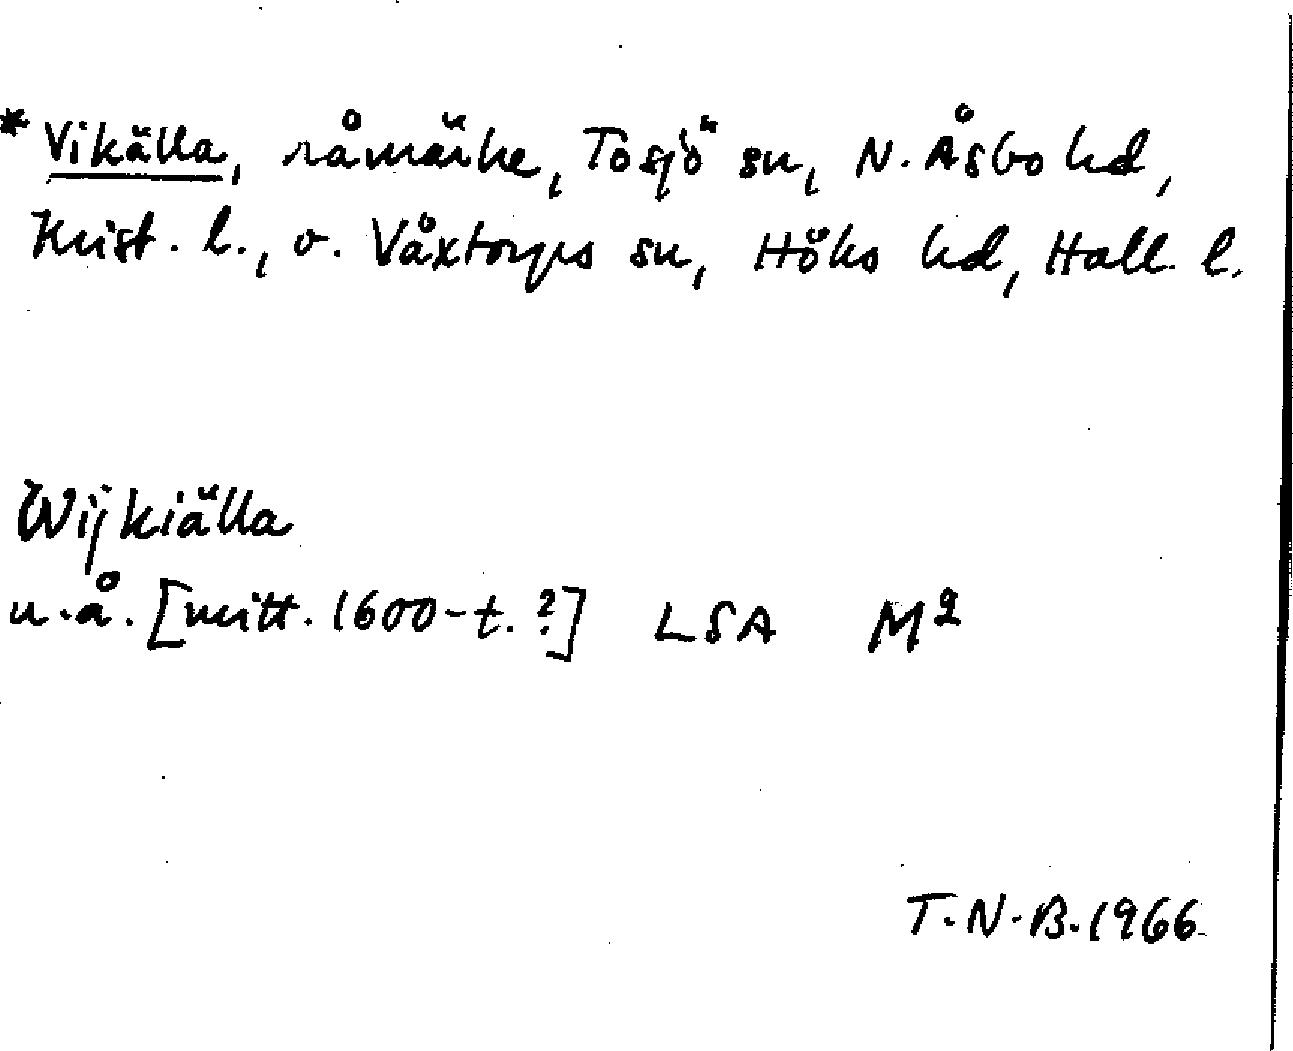 * Vikälla, råmärke, Tosjö sn, N. Åsbo hd,
Krist. l., o. Våxtorps sn, Höks hd, Hall. l.
Wijkiälla
u.å. [mitt. 1600-t.?] LSA M2
T.N.B. 1966